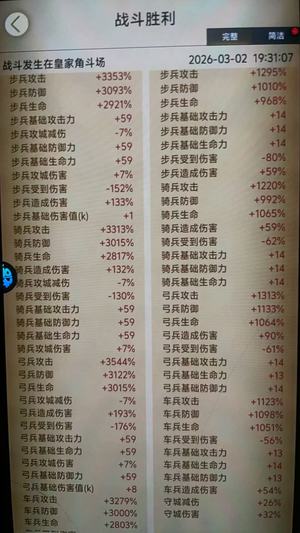 战斗胜利
完整
简洁
战斗发生在皇家角斗场
2026-03-02 19:31:07
步兵攻击 +3353%
步兵防御 +3093%
步兵生命 +2921%
步兵基础攻击力 +59
步兵攻城减伤 -7%
步兵基础防御力 +59
步兵基础生命力 +59
步兵攻城伤害 +7%
步兵受到伤害 -152%
步兵造成伤害 +133%
步兵基础伤害值(k) +1
骑兵攻击 +3313%
骑兵防御 +3015%
骑兵生命 +2817%
骑兵造成伤害 +132%
骑兵攻城减伤 -7%
骑兵受到伤害 -130%
骑兵基础攻击力 +59
骑兵基础防御力 +59
骑兵基础生命力 +59
骑兵攻城伤害 +7%
弓兵攻击 +3544%
弓兵防御 +3122%
弓兵生命 +3015%
弓兵攻城减伤 -7%
弓兵造成伤害 +193%
弓兵受到伤害 -176%
弓兵基础攻击力 +59
弓兵基础生命力 +59
弓兵攻城伤害 +7%
弓兵基础防御力 +59
弓兵基础伤害值(k) +8
车兵攻击 +3279%
车兵防御 +3000%
车兵生命 +2803%
步兵攻击 +1295%
步兵防御 +1010%
步兵生命 +968%
步兵基础攻击力 +14
步兵基础防御力 +14
步兵基础生命力 +14
步兵受到伤害 -80%
步兵造成伤害 +59%
骑兵攻击 +1220%
骑兵防御 +992%
骑兵生命 +1065%
骑兵造成伤害 +59%
骑兵受到伤害 -62%
骑兵基础攻击力 +14
骑兵基础防御力 +14
骑兵基础生命力 +14
弓兵攻击 +1313%
弓兵防御 +1133%
弓兵生命 +1064%
弓兵造成伤害 +90%
弓兵受到伤害 -61%
弓兵基础攻击力 +14
弓兵基础生命力 +13
弓兵基础防御力 +14
车兵攻击 +1123%
车兵防御 +1098%
车兵生命 +1051%
车兵受到伤害 -56%
车兵基础攻击力 +13
车兵基础生命力 +14
车兵基础防御力 +13
车兵造成伤害 +54%
守城减伤 +26%
守城伤害 +32%